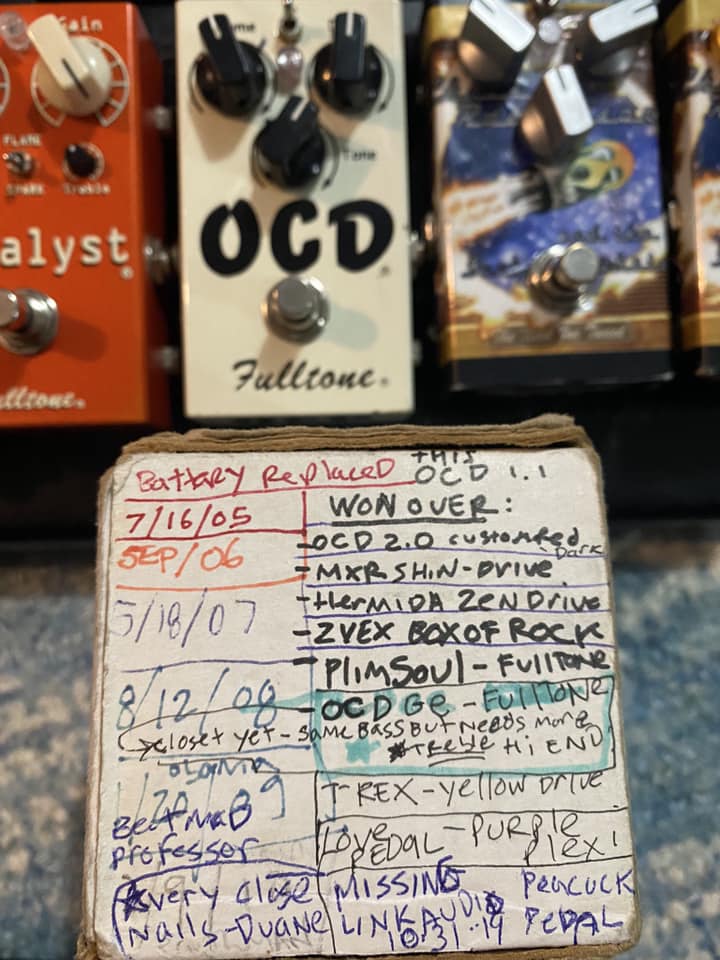 Gain
FLAME
Treble
alyst
lltone
Tone
OCD
Fulltone
BattARY RepLACED
7/16/05
SEP/06
5/18/07
8/12/08
THIS
OCD 1.1
WON OVER:
-OCD 2.0 customShed
Dark
-MXR SHiN-Drive
-HermIDA ZENDrive
-ZVEX BOX OF ROCK
-PlimSoul-FullTONE
-OCD Ge-FullTONE
closet yet-SAMe BASS BuT NeeDS More
TReble Hi END
T-REX-yellow Drive
LOVE PEDAL-PURPle
Plexi
professor
very close
Nails-Duane
MISSING
LINK AUDIO
10/31/19
PeACOCK
PeDAL